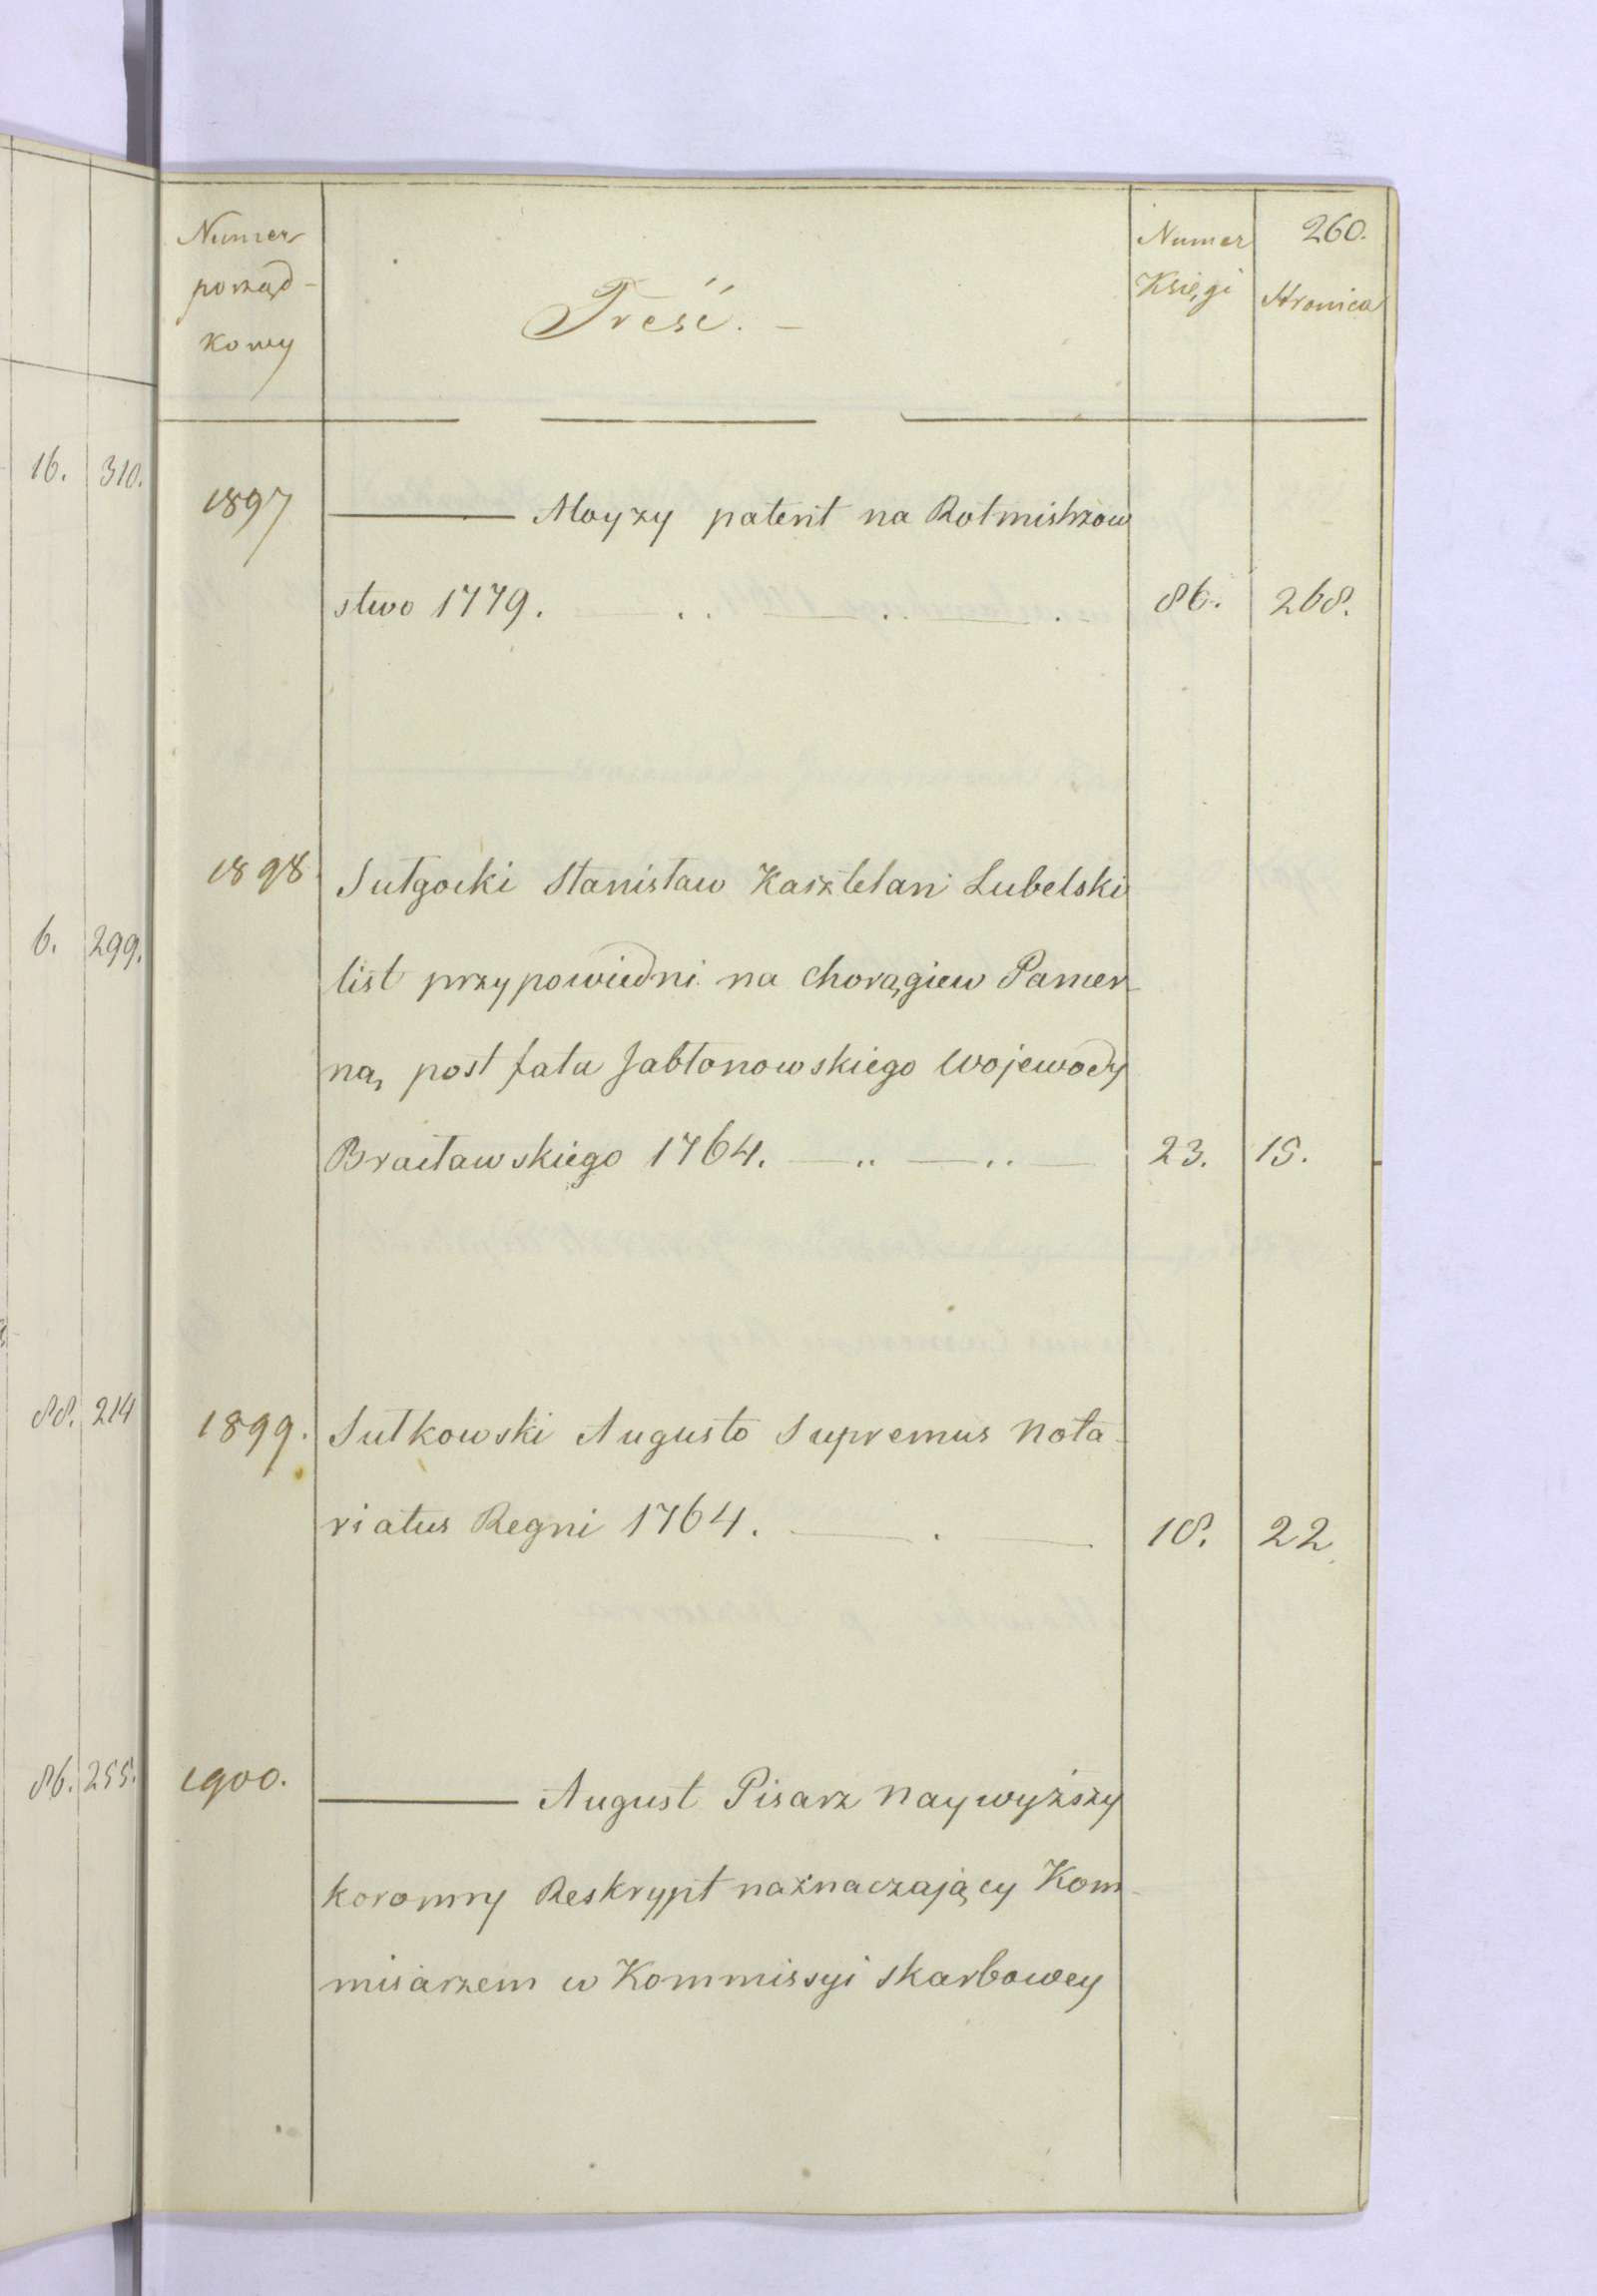 260.
Numer porząd-kowy
Treść. —
Numer Księgi
Stronica
16. 310.
1897 ——— Aloyzy patent na Rotmistrzow
stwo 1779. — .. — .. — . 86. 268.
1898. Sułgocki Stanisław Kasztelan Lubelski
6. 299.
list przypowiedni na chorągiew Pancer-
ną, post fata Jabłonowskiego Wojewody
Bracławskiego 1764. — .. — .. — 23. 15.
88. 214
1899. Sułkowski Augusto Supremus Nota-
riatus Regni 1764. — . — 18. 22.
86. 255.
1900. ——— August Pisarz Naywyższy
koronny Reskrypt naznaczający Kom-
misarzem w Kommissyi Skarbowey